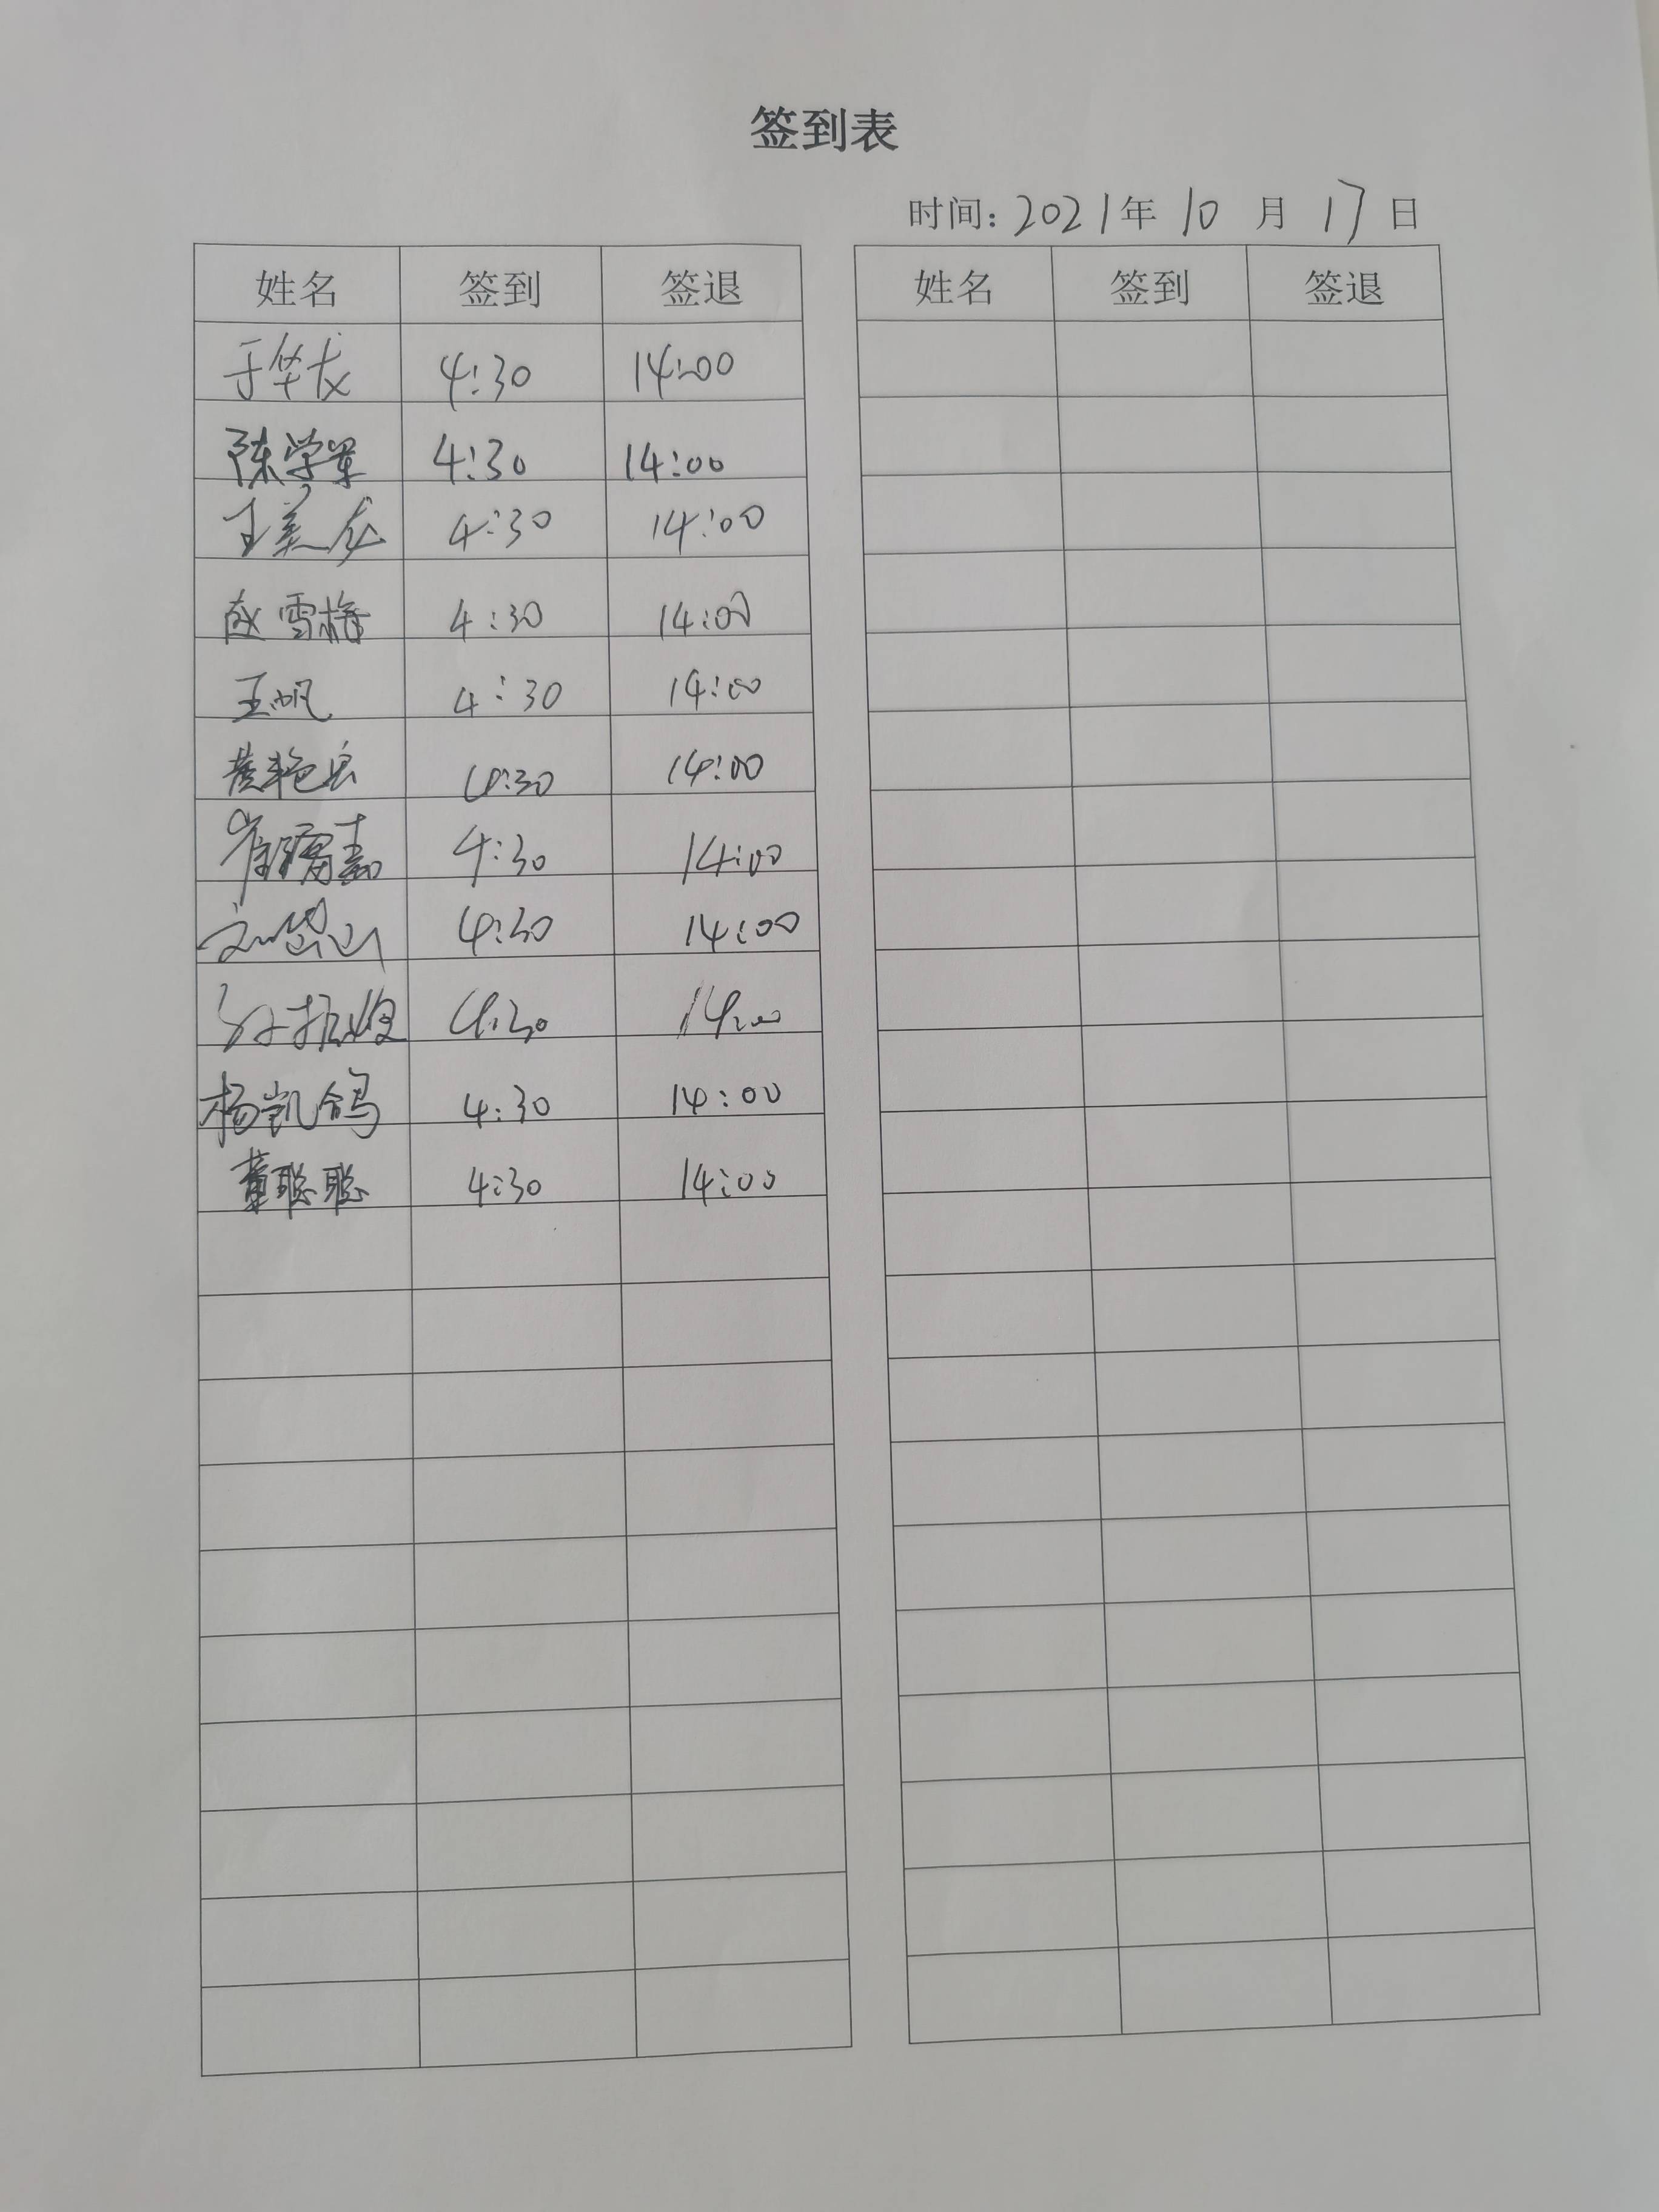 签到表
时间: 2021年 10 月 17 日
姓名 签到 签退 姓名 签到 签退
于华龙 4:30 14:00
陈学军 4:30 14:00
王美龙 4:30 14:00
赵雪梅 4:30 14:00
王帆 4:30 14:00
黄艳兵 4:30 14:00
崔露嘉 4:30 14:00
4:30 14:00
孙振 4:30 14:00
杨凯鸽 4:30 14:00
董聪聪 4:30 14:00